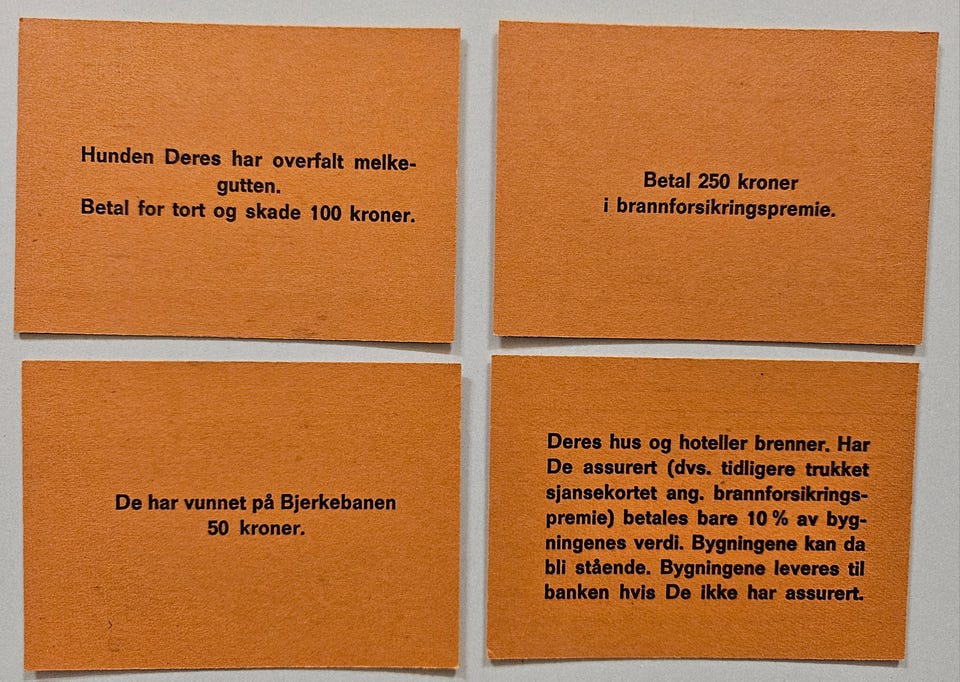 Hunden Deres har overfalt melke-
gutten.
Betal for tort og skade 100 kroner.
Betal 250 kroner
i brannforsikringspremie.
De har vunnet på Bjerkebanen
50 kroner.
Deres hus og hoteller brenner. Har
De assurert (dvs. tidligere trukket
sjansekortet ang. brannforsikrings-
premie) betales bare 10 % av byg-
ningenes verdi. Bygningene kan da
bli stående. Bygningene leveres til
banken hvis De ikke har assurert.